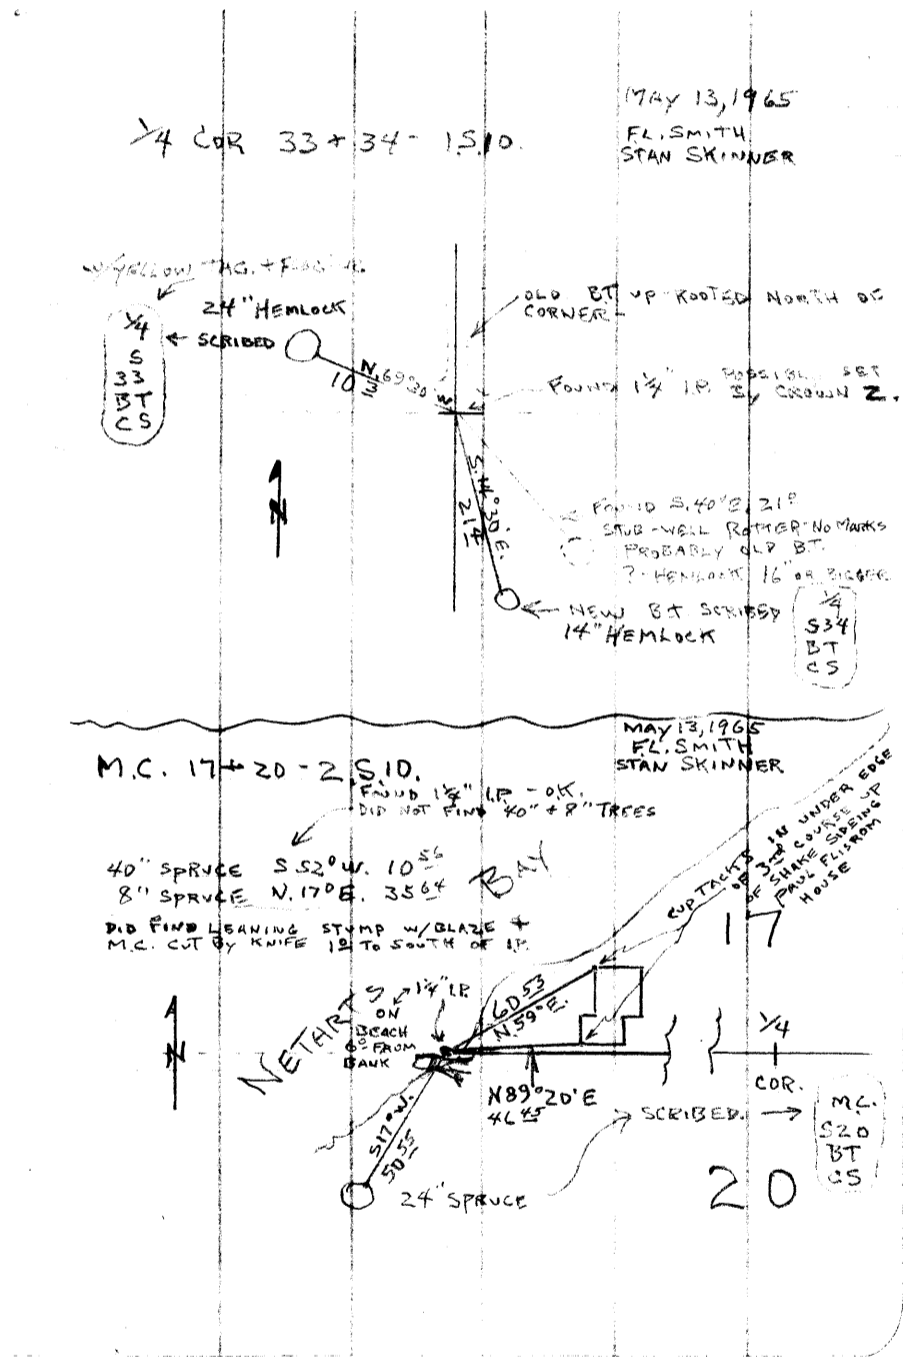 MAY 13, 1965
F.L. SMITH
STAN SKINNER
1/4 COR 33 + 34 - 1.S.10.
W/YELLOW TAG. +
24" HEMLOCK
← SCRIBED
1/4
S
33
BT
CS
OLD BT UP ROOTED NORTH OF
CORNER-
N. 69° 30' W.
10 3
FOUND 1 1/4" I.P. POSSIBLY SET
BY CROWN Z.
N
S. 14° 30' E.
21 4
FOUND S. 40° E. 21 0
STUB - WELL ROTTED - NO MARKS
PROBABLY OLD B.T.
? - HEMLOCK 16" OR BIGGER
NEW BT SCRIBED
14" HEMLOCK
1/4
S34
BT
CS
MAY 13, 1965
F.L. SMITH
STAN SKINNER
M.C. 17 + 20 - 2.S.10.
FOUND 1 1/4" I.P. - O.K.
DID NOT FIND 40" + 8" TREES
40" SPRUCE S 52° W. 10 56
8" SPRUCE N. 17° E. 35 64
DID FIND LEANING STUMP W/BLAZE +
M.C. CUT BY KNIFE 1 0 TO SOUTH OF I.P.
NETARTS BAY
CUP TACKS IN UNDER EDGE
OF 3RD COURSE UP
OF SHAKE SIDEING
PAUL FLISROM
HOUSE
17
1 1/4" I.P.
ON
BEACH
6 0 FROM
BANK
60 53
N. 59° E.
N
1/4
COR.
N 89° 20' E
46 45
S 17° W.
50 55
24" SPRUCE
SCRIBED. →
M.C.
S20
BT
CS
20